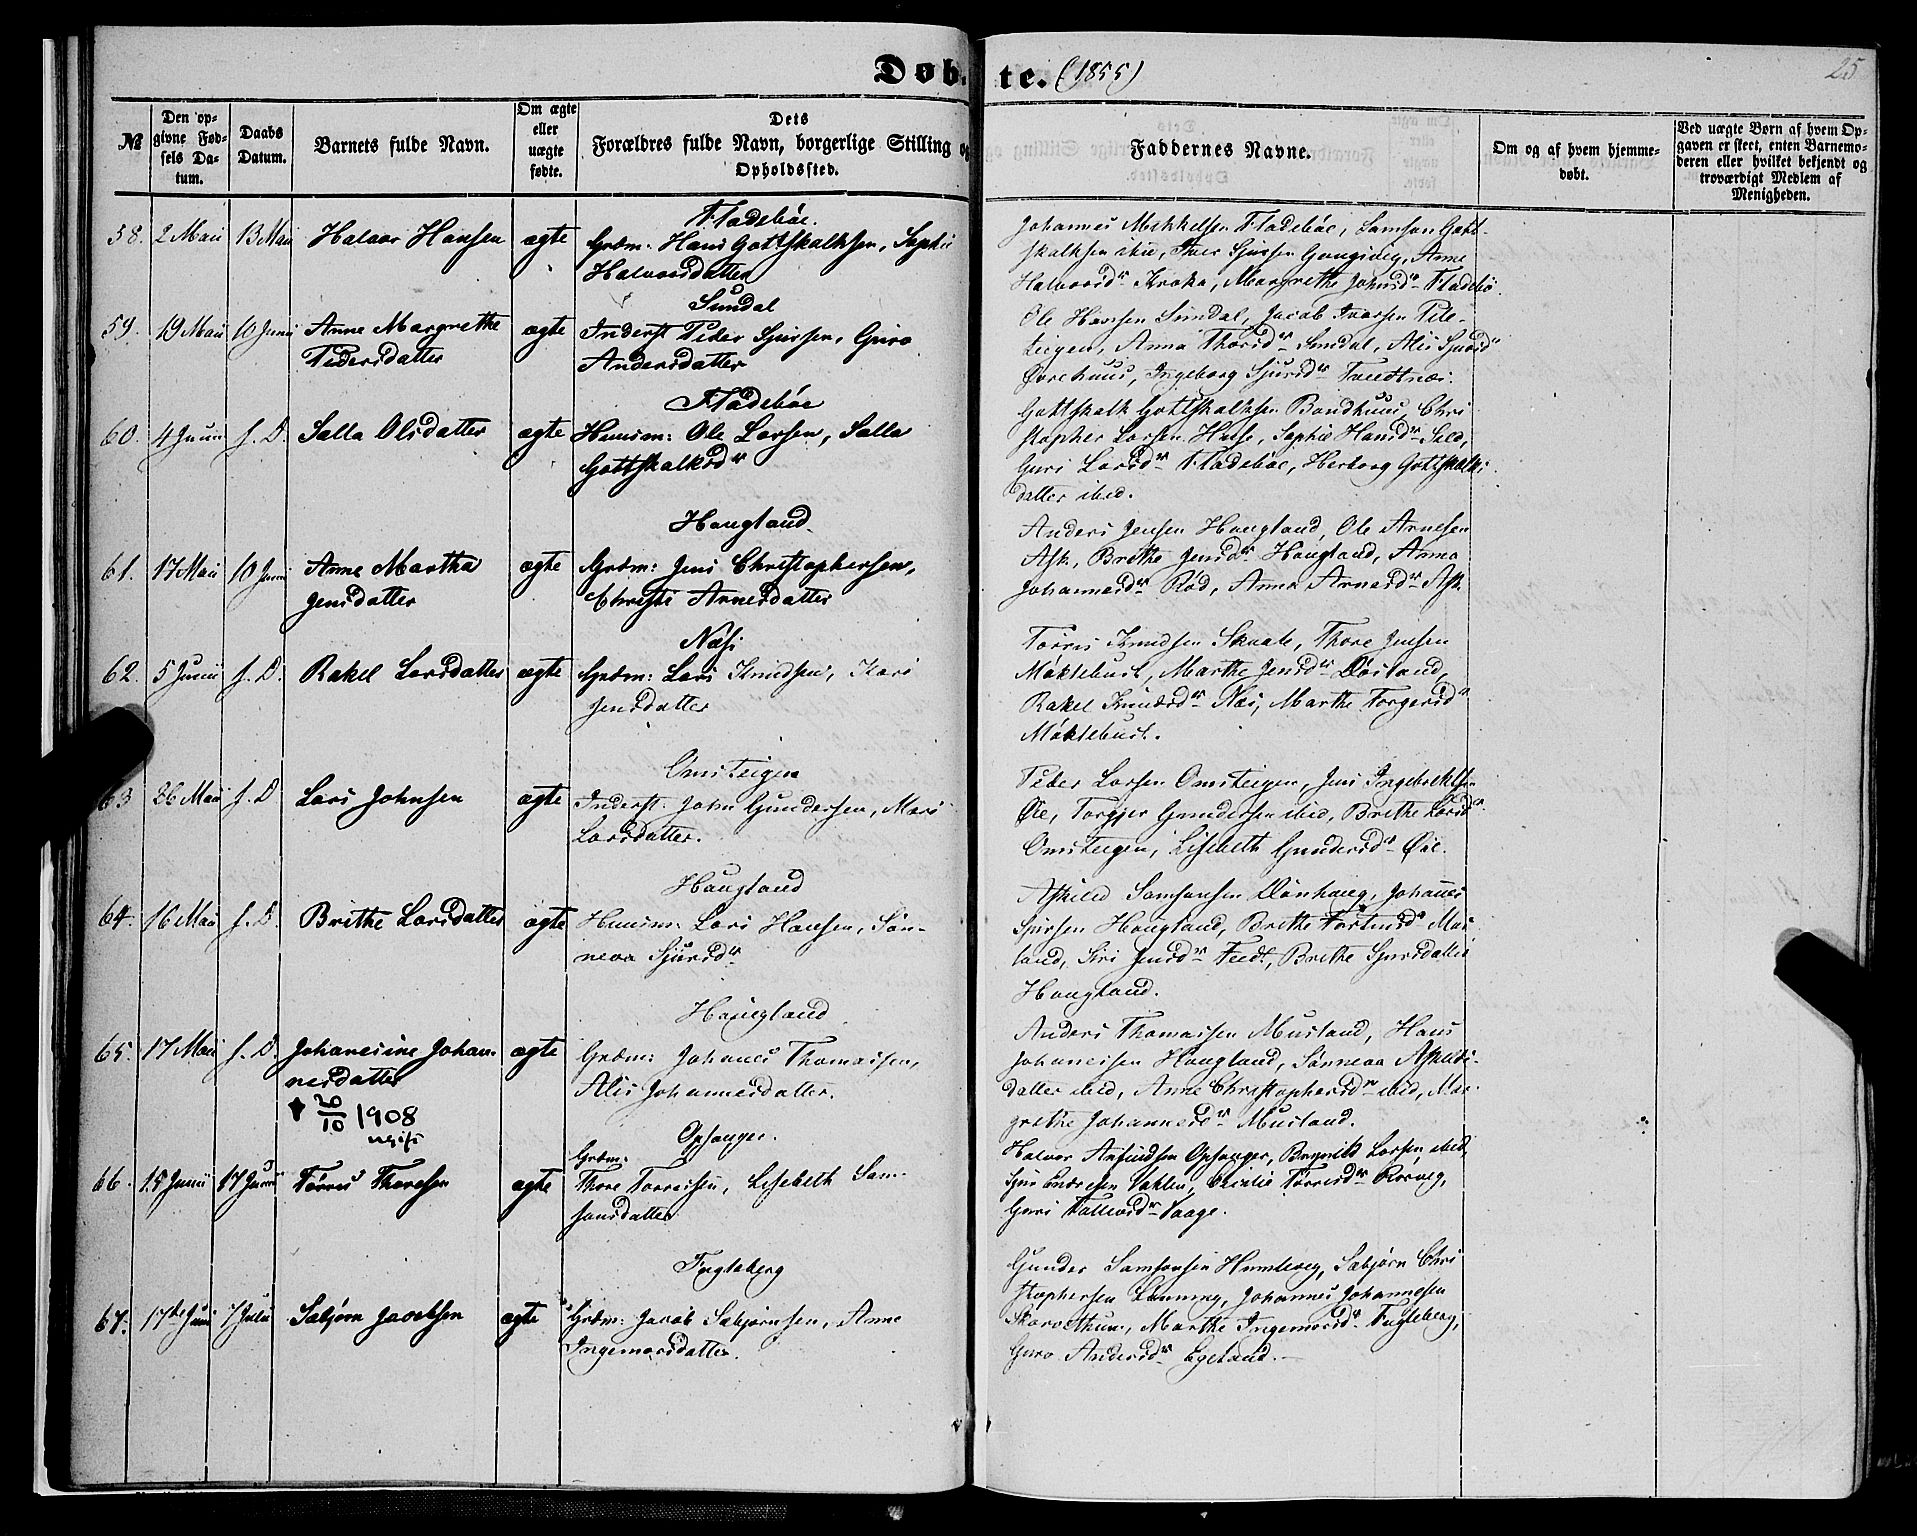 Døb-te. (1855)
25
№
Den op-
givne Fød-
sels Da-
tum.
Daabs
Datum.
Barnets fulde Navn.
Om ægte
eller
uægte
fødte.
Dets
Forældres fulde Navn, borgerlige Stilling og
Opholdssted.
Faddernes Navne.
Om og af hvem hjemme-
døbt.
Ved uægte Børn af hvem Op-
gaven er skeet, enten Barnemo-
deren eller hvilket bekjendt og
troværdigt Medlem af
Menigheden.
58. 2 Maii 13 Maii Halvor Hansen ægte
Fladebøe.
Grdm: Hans Gottskalksen, Sophie
Halvorsdatter
Johannes Mikkelsen Fladebøe, Samson Gott-
skalksen ibid, Iver Sjursen Anne
Halvorsdr Kroka, Margrethe Johnsdr Fladebø.
59. 19 Maii 10 Junii Anne Margrethe
Pedersdatter
ægte
Sundal
Inderst Peder Sjursen, Guro
Andersdatter
Ole Hansen Sundal, Jacob Ivarsen Tele-
teigen, Anna Thorsdr Sundal, Alis Sjursdr
Ørrehuus, Ingeborg Sjursdr Tvedtnæs.
60. 4 Junii s. D. Salla Olsdatter ægte
Fladebøe
Huusm: Ole Larsen, Salla
Gottskalksdr
Gottskalk Gottskalksen Bondhuus, Chri
stopher Larsen Sophie Hansdr Seld,
Guri Larsdr Fladebøe, Herborg Gottskalks-
datter ibid.
61. 17 Maii 10 Junii Anne Martha
Jensdatter
ægte
Haugland
Grdm: Jens Christophersen,
Christi Arnesdatter
Anders Jensen Haugland, Ole Arnesen
Ask, Brithe Jensdr Haugland, Anna
Johannesdr Rød, Anna Arnesdr Ask.
62. 5 Junii s. D. Rakel Larsdatter ægte
Næs
Grdm: Lars Knudsen, Kari
Jensdatter
Torris Knudsen Skaate, Thore Jensen
Møklebust, Marthe Jensdr Døsland,
Rakel Knudsdr Næs, Marthe Torgersdr
Møklebust.
63 26 Maii s. D Lars Johnsen ægte
Omsteigen
Inderst. John Gundersen, Mari
Larsdatter.
Peder Larsen Omsteigen, Jens Ingebrektsen
Øie, Torgjer Gundersen ibid, Brithe Larsdr
Omsteigen, Lisebeth Gundersdr Øie.
64. 16 Maii s. D. Brithe Larsdatter ægte
Haugland
Huusm: Lars Hansen, Søn-
neva Sjursdr
Askild Samsonsen Dønhaug, Johannes
Sjursen Haugland, Brithe Torkelsdr Mus
land, Siri Jensdr Tvedt, Brithe Sjursdatter
Haugland.
65. 17 Maii s. D. Johannesine Johan-
nesdatter
✝ 26/10 1908
ugift
ægte
Haugland
Grdm: Johannes Thomassen,
Alis Johannesdatter.
Anders Thomassen Musland, Hans
Johannessen Haugland, Sønneva Askilds-
datter ibid, Anne Christophersdr ibid, Mar-
grethe Johannesdr Musland.
66. 15 Junii 17 Junii Tørris Thoresen ægte
Opsanger.
Grdm:
Thore Torrissen, Lisebeth Sam-
sonsdatter
Halvor Anfindsen Opsanger, Brynild Larsen ibid,
Sjur Endresen Valen, Cicilie Tørrisdr Rørvig,
Guri Tollevsdr Vaage.
67. 17de Juni 7 Julii Sæbjørn Jacobsen ægte
Fugleberg
Grdm: Jacob Sæbjørnsen, Anne
Ingemorsdatter.
Gunder Samsonsen Humleveg, Sæbjørn Chri
stophersen Johannes Johannesen
Skorvethun, Marthe Ingemorsdr Fugleberg,
Guro Andersdr Egeland.